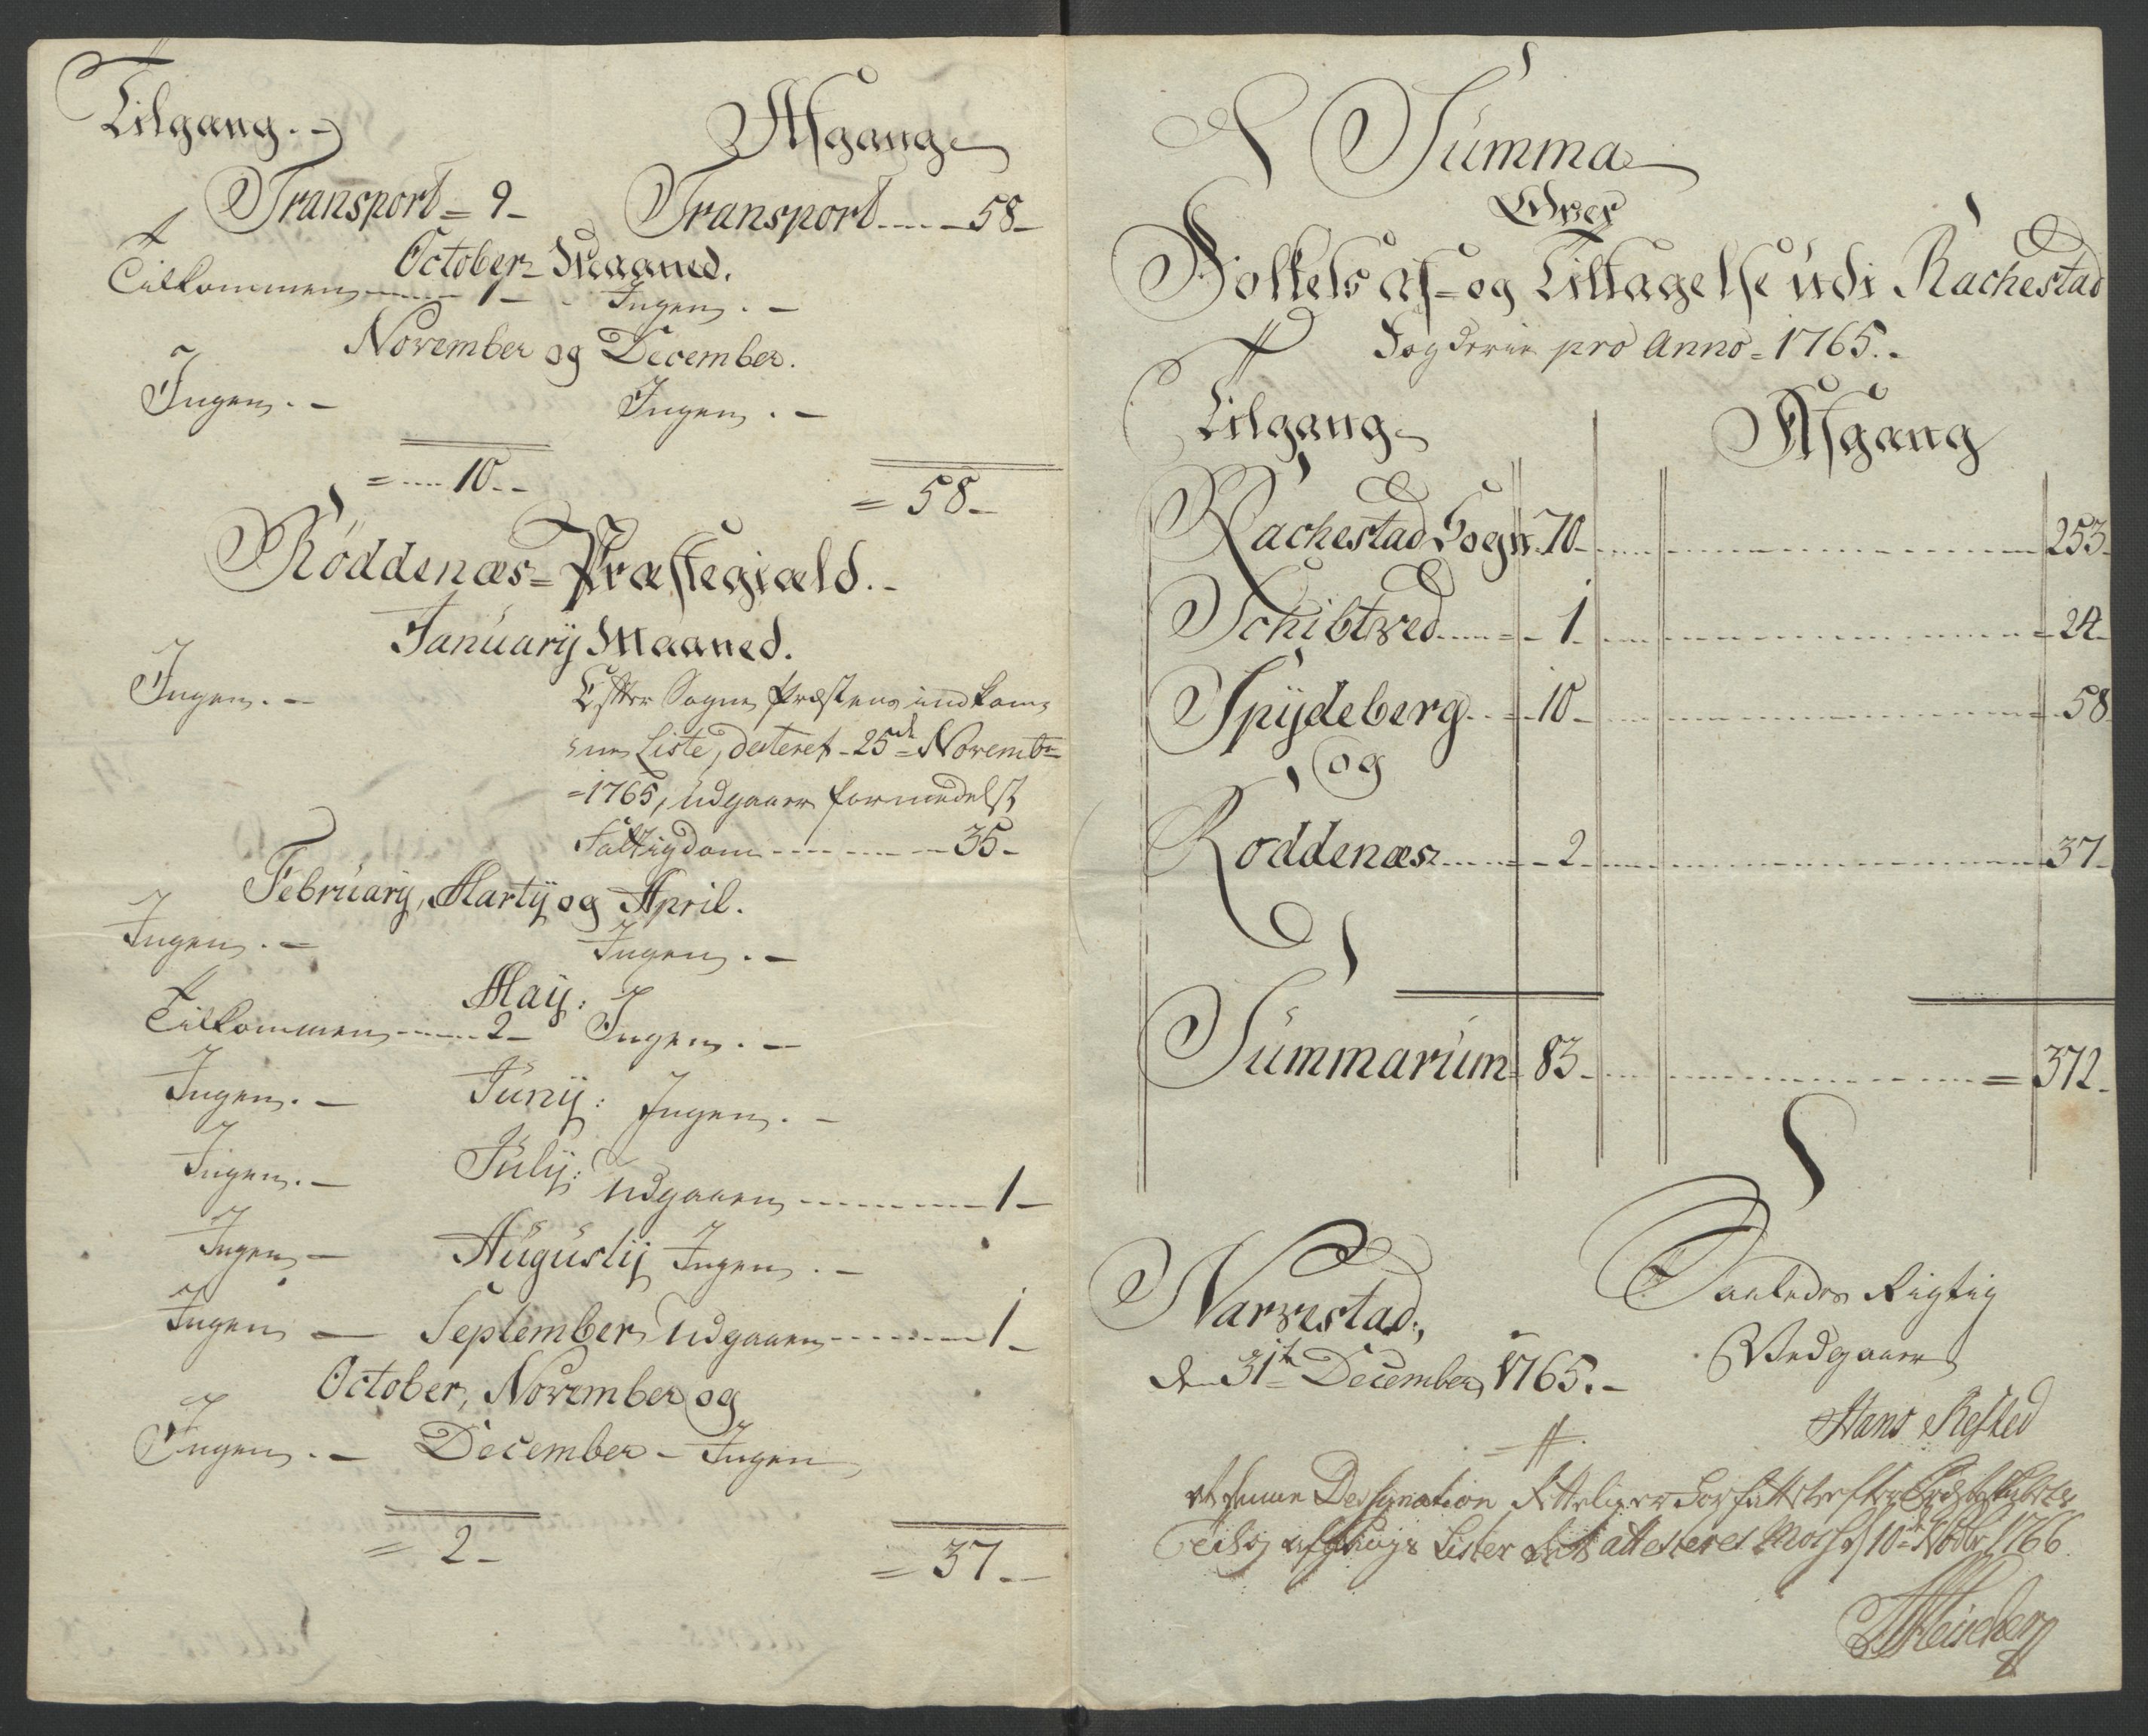 Tilgang.
Afgang
Transport = 9 -
Transport ---- 58 -
October Maaned.
Tilkommen ---- 1 -
Ingen. -
November og December.
Ingen. -
Ingen. -
= ---- 10 - -
= 58 -
Røddenæs = Præstegiæld. -
Januarij Maaned.
Ingen. -
Efter Sogne Præstens indkom-
ne Liste, dateret 25de Novembr
= 1765, udgaaen formedelst
Fattigdom ---- 35 -
Februarij, Martij og April.
Ingen. -
Ingen. -
Maij:
Tilkommen ---- 2 -
Ingen. -
Ingen. -
Junij:
Ingen. -
Ingen. -
Julij:
Udgaaen ---- 1 -
Ingen -
Augustij
Ingen. -
Ingen -
September
Udgaaen ---- 1 -
October, November og
Ingen. -
December -
Ingen
= 2 -
= 37 -
Summa
Over
Folkets Af- og Tiltagelse udi Rachestad
Fogderie pro Anno = 1765. -
Tilgang
Afgang
Rachestad Sogn 70 - ---- 253 -
Schibtved ---- 1 - ---- 24 -
Spydeberg ---- 10 - ---- 58
og
Roddenæs ---- 2 - ---- 37 -
Summarum = 83 - ---- = 372 -
Narvestad,
den 31te December 1765. -
Saaledes Rigtig
Vedgaaer
Hans Refsted
At denne Designation er
Lister attesteres Moss d 10de Nobr 1766